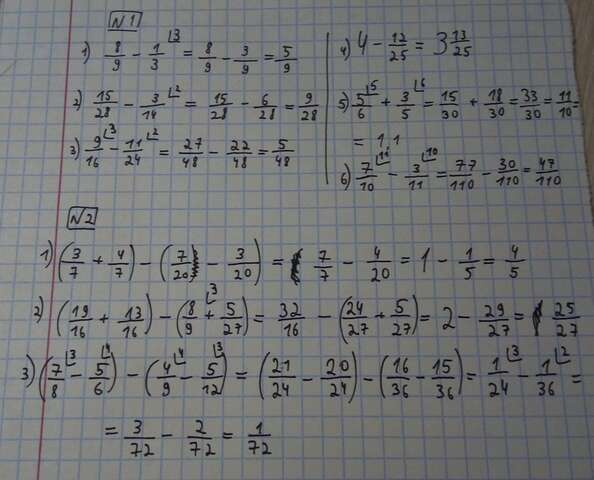 №1
1) 8/9 - 1/3 ⌊3 = 8/9 - 3/9 = 5/9
2) 15/28 - 3/14 ⌊2 = 15/28 - 6/28 = 9/28
3) 9/16 ⌊3 - 11/24 ⌊2 = 27/48 - 22/48 = 5/48
4) 4 - 12/25 = 3 13/25
5) 5/6 ⌊5 + 3/5 ⌊6 = 15/30 + 18/30 = 33/30 = 11/10 =
= 1,1
6) 7/10 ⌊11 - 3/11 ⌊10 = 77/110 - 30/110 = 47/110
№2
1) (3/7 + 4/7) - (7/20 - 3/20) = 7/7 - 4/20 = 1 - 1/5 = 4/5
2) (19/16 + 13/16) - (8/9 ⌊3 + 5/27) = 32/16 - (24/27 + 5/27) = 2 - 29/27 = 25/27
3) (7/8 ⌊3 - 5/6 ⌊4) - (4/9 ⌊4 - 5/12 ⌊3) = (21/24 - 20/24) - (16/36 - 15/36) = 1/24 ⌊3 - 1/36 ⌊2 =
= 3/72 - 2/72 = 1/72